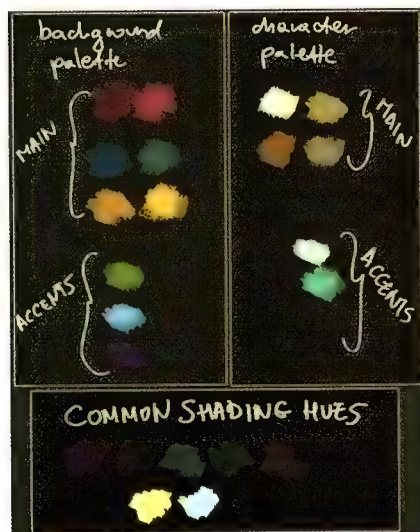 background
palette
MAIN
ACCENTS
character
palette
MAIN
ACCENTS
COMMON SHADING HUES